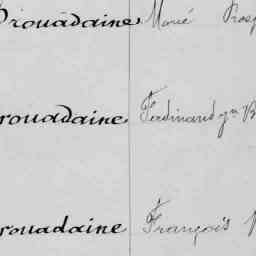 Prouadaine Marié Prosp
rouadaine Ferdinand Jn B
rouadaine François